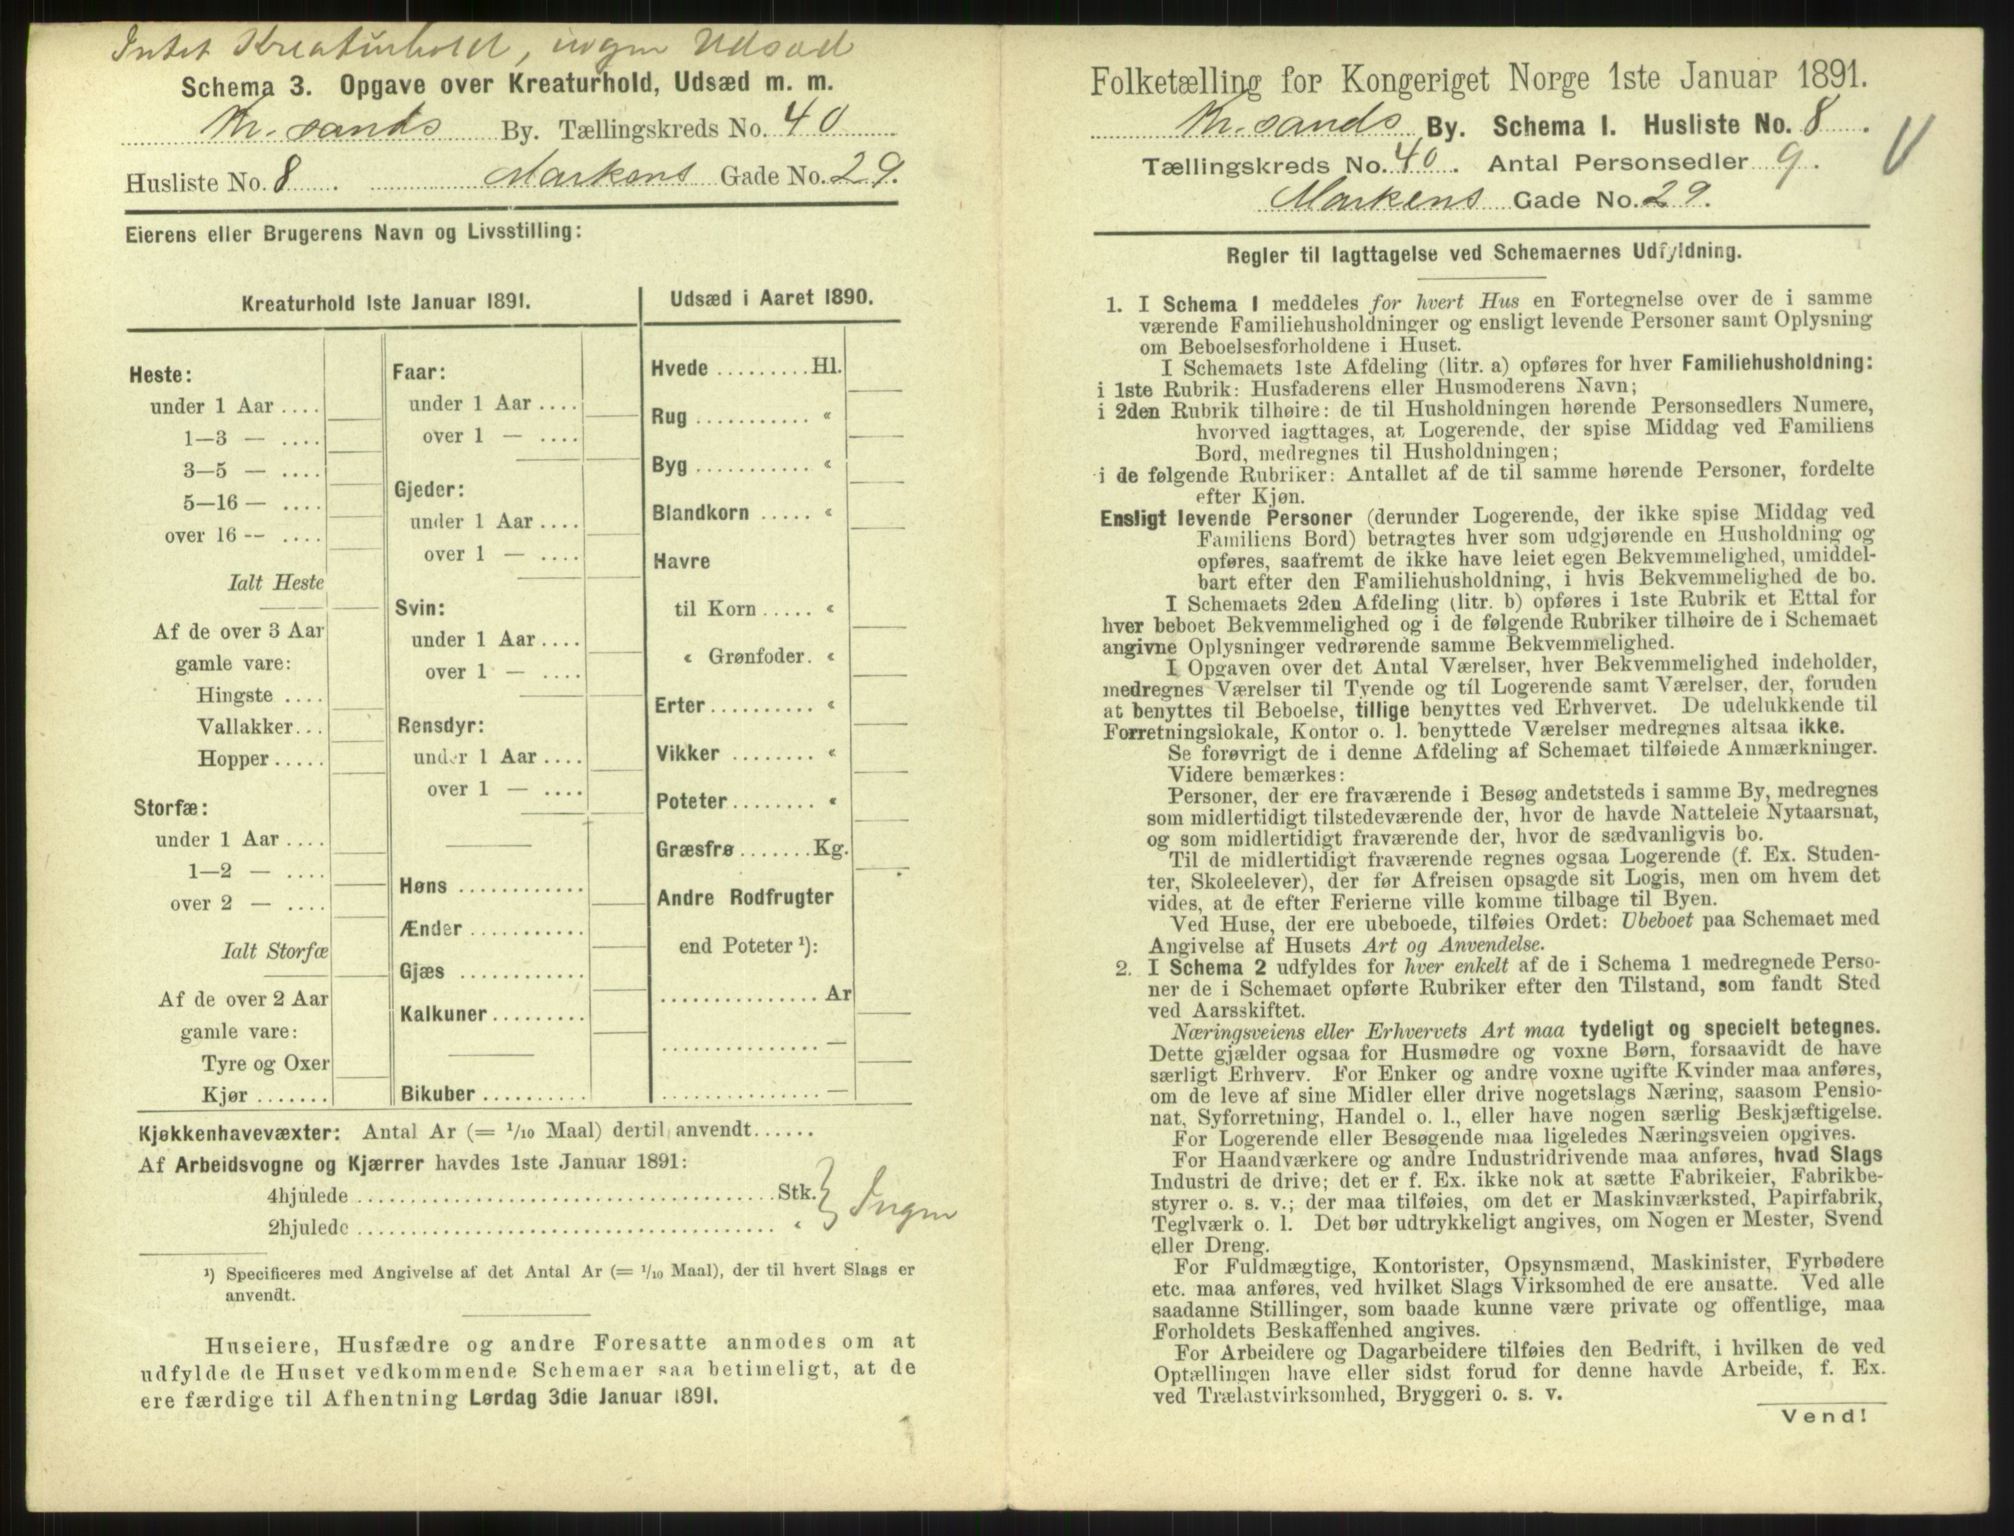 Intet Kreaturhold, ingen Udsæd
Schema 3. Opgave over Kreaturhold, Udsæd m. m.
Kr.sands By. Tællingskreds No. 40
Husliste No. 8 Markens Gade No. 29.
Eierens eller Brugerens Navn og Livsstilling:
Kreaturhold 1ste Januar 1891.
Heste:
under 1 Aar ....
1—3 — ....
3—5 — ....
5—16 — ....
over 16 -- ....
Ialt Heste
Af de over 3 Aar
gamle vare:
Hingste ....
Vallakker...
Hopper.....
Storfæ:
under 1 Aar ....
1—2 — ....
over 2 — ....
Ialt Storfæ
Af de over 2 Aar
gamle vare:
Tyre og Oxer
Kjør .......
Faar:
under 1 Aar ....
over 1 — ....
Gjeder:
under 1 Aar ....
over 1 — ....
Svin:
under 1 Aar ....
over 1 — ....
Rensdyr:
under 1 Aar ....
over 1 — ....
Høns ............
Ænder ...........
Gjæs ............
Kalkuner .........
Bikuber ..........
Udsæd i Aaret 1890.
Hvede .........Hl.
Rug ........... «
Byg ........... «
Blandkorn ..... «
Havre
til Korn ..... «
« Grønfoder. «
Erter.......... «
Vikker ........ «
Poteter........ «
Græsfrø .......Kg.
Andre Rodfrugter
end Poteter ¹):
............... Ar
............... —
............... —
Kjøkkenhavevæxter: Antal Ar (= 1/10 Maal) dertil anvendt......
Af Arbeidsvogne og Kjærrer havdes 1ste Januar 1891:
4hjulede ........................................Stk. } Ingen
2hjulede ........................................ «
¹) Specificeres med Angivelse af det Antal Ar (= 1/10 Maal), der til hvert Slags er
anvendt.
Huseiere, Husfædre og andre Foresatte anmodes om at
udfylde de Huset vedkommende Schemaer saa betimeligt, at de
ere færdige til Afhentning Lørdag 3die Januar 1891.
Folketælling for Kongeriget Norge 1ste Januar 1891.
Kr.sands By. Schema I. Husliste No. 8.
Tællingskreds No. 40. Antal Personsedler 9.
Markens Gade No. 29.
Regler til Iagttagelse ved Schemaernes Udfyldning.
1. I Schema 1 meddeles for hvert Hus en Fortegnelse over de i samme
værende Familiehusholdninger og ensligt levende Personer samt Oplysning
om Beboelsesforholdene i Huset.
I Schemaets 1ste Afdeling (litr. a) opføres for hver Familiehusholdning:
i 1ste Rubrik: Husfaderens eller Husmoderens Navn;
i 2den Rubrik tilhøire: de til Husholdningen hørende Personsedlers Numere,
hvorved iagttages, at Logerende, der spise Middag ved Familiens
Bord, medregnes til Husholdningen;
i de følgende Rubriker: Antallet af de til samme hørende Personer, fordelte
efter Kjøn.
Ensligt levende Personer (derunder Logerende, der ikke spise Middag ved
Familiens Bord) betragtes hver som udgjørende en Husholdning og
opføres, saafremt de ikke have leiet egen Bekvemmelighed, umiddel-
bart efter den Familiehusholdning, i hvis Bekvemmelighed de bo.
I Schemaets 2den Afdeling (litr. b) opføres i 1ste Rubrik et Ettal for
hver beboet Bekvemmelighed og i de følgende Rubriker tilhøire de i Schemaet
angivne Oplysninger vedrørende samme Bekvemmelighed.
I Opgaven over det Antal Værelser, hver Bekvemmelighed indeholder,
medregnes Værelser til Tyende og til Logerende samt Værelser, der, foruden
at benyttes til Beboelse, tillige benyttes ved Erhvervet. De udelukkende til
Forretningslokale, Kontor o. l. benyttede Værelser medregnes altsaa ikke.
Se forøvrigt de i denne Afdeling af Schemaet tilføiede Anmærkninger.
Videre bemærkes:
Personer, der ere fraværende i Besøg andetsteds i samme By, medregnes
som midlertidigt tilstedeværende der, hvor de havde Natteleie Nytaarsnat,
og som midlertidigt fraværende der, hvor de sædvanligvis bo.
Til de midlertidigt fraværende regnes ogsaa Logerende (f. Ex. Studen-
ter, Skoleelever), der før Afreisen opsagde sit Logis, men om hvem det
vides, at de efter Ferierne ville komme tilbage til Byen.
Ved Huse, der ere ubeboede, tilføies Ordet: Ubeboet paa Schemaet med
Angivelse af Husets Art og Anvendelse.
2. I Schema 2 udfyldes for hver enkelt af de i Schema 1 medregnede Perso-
ner de i Schemaet opførte Rubriker efter den Tilstand, som fandt Sted
ved Aarsskiftet.
Næringsveiens eller Erhvervets Art maa tydeligt og specielt betegnes.
Dette gjælder ogsaa for Husmødre og voxne Børn, forsaavidt de have
særligt Erhverv. For Enker og andre voxne ugifte Kvinder maa anføres,
om de leve af sine Midler eller drive nogetslags Næring, saasom Pensio-
nat, Syforretning, Handel o. l., eller have nogen særlig Beskjæftigelse.
For Logerende eller Besøgende maa ligeledes Næringsveien opgives.
For Haandværkere og andre Industridrivende maa anføres, hvad Slags
Industri de drive; det er f. Ex. ikke nok at sætte Fabrikeier, Fabrikbe-
styrer o. s. v.; der maa tilføies, om det er Maskinværksted, Papirfabrik,
Teglværk o. l. Det bør udtrykkeligt angives, om Nogen er Mester, Svend
eller Dreng.
For Fuldmægtige, Kontorister, Opsynsmænd, Maskinister, Fyrbødere
etc. maa anføres, ved hvilket Slags Virksomhed de ere ansatte. Ved alle
saadanne Stillinger, som baade kunne være private og offentlige, maa
Forholdets Beskaffenhed angives.
For Arbeidere og Dagarbeidere tilføies den Bedrift, i hvilken de ved
Optællingen have eller sidst forud for denne havde Arbeide, f. Ex.
ved Trælastvirksomhed, Bryggeri o. s. v.
Vend!